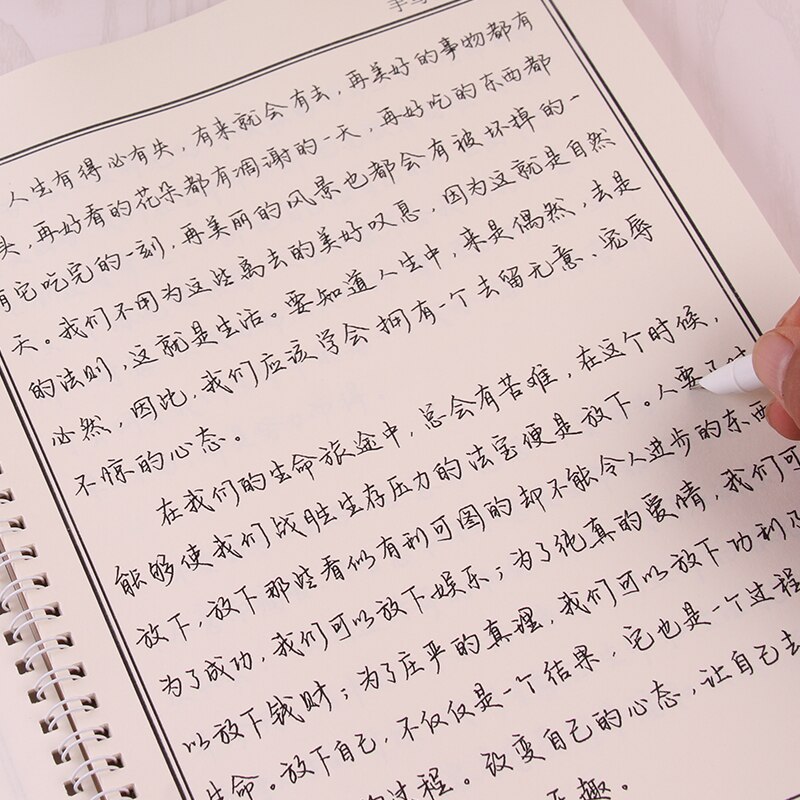 手写
人生有得必有失,有来就会有去,再美好的事物都有
头,再好看的花朵都有凋谢的一天,再好吃的东西都
有它吃完的一刻,再美丽的风景也都会有被坏掉的一
天。我们不用为这些离去的美好叹息,因为这就是自然
的法则,这就是生活。要知道人生中,来是偶然,去是
必然,因此,我们应该学会拥有一个去留无意、宠辱
不惊的心态。
在我们的生命旅途中,总会有苦难,在这个时候,
能够使我们战胜生存压力的法宝便是放下。人要
放下,放下那些看似有利可图的却不能令人进步的东西
为了成功,我们可以放下娱乐;为了纯真的爱情,我们可
以放下钱财;为了庄严的真理,我们可以放下功利
生命。放下自己,不仅仅是一个结果,它也是一个过程
的过程。改变自己的心态,让自己去
趣。